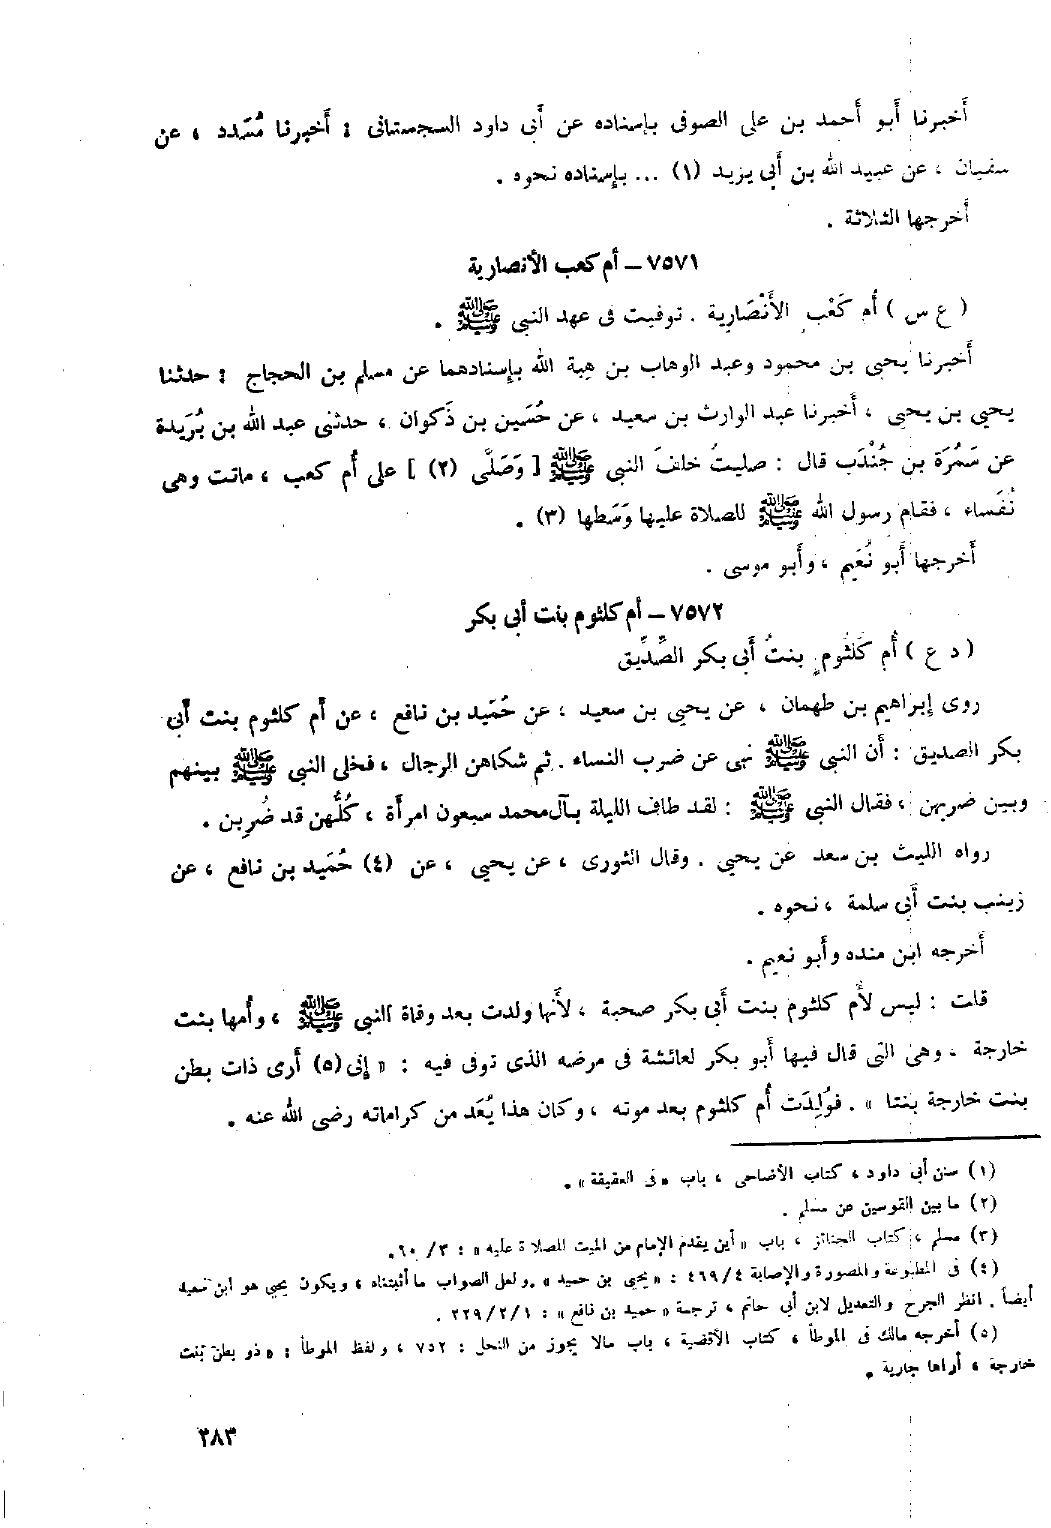 أخبرنا أبو أحمد بن على الصوفى بإسناده عن أبى داود السجستانى : أخبرنا مُسَدد ، عن
سفيان ، عن عبيد الله بن أبى يزيد (١) ... بإسناده نحوه .
أخرجها الثلاثة .
٧٥٧١ – أم كعب الأنصارية
( ع س ) أُم كَعْب الأَنْصَارِية . توفيت فى عهد النبى ﷺ .
أخبرنا يحيى بن محمود وعبد الوهاب بن هِبة الله بإسنادهما عن مسلم بن الحجاج : حدثنا
يحيى بن يحيى ، أخبرنا عبد الوارث بن سعيد ، عن حُسَين بن ذَكوان ، حدثنى عبد الله بن بُرَيدة
عن سَمُرَة بن جُنْدَب قال : صليتُ خلفَ النبى ﷺ [ وَصَلَّى (٢) ] على أُم كعب ، ماتت وهى
نُفَساء ، فقام رسول الله ﷺ للصلاة عليها وَسَطها (٣) .
أخرجها أبو نُعَيم ، وأبو موسى .
٧٥٧٢ – أم كلثوم بنت أبى بكر
( د ع ) أُم كَلثُومٍ بنتُ أَبى بكر الصِّدِّيق
روى إبراهيم بن طهمان ، عن يحيى بن سعيد ، عن حُمَيد بن نافع ، عن أم كلثوم بنت أبى
بكر الصديق : أن النبى ﷺ نهى عن ضرب النساء . ثم شكاهن الرجال ، فخلى النبى ﷺ بينهم
وبين ضربهن ، فقال النبى ﷺ : لقد طاف الليلة بآل محمد سبعون امرأة ، كُلُّهن قد ضُرِبن .
رواه الليث بن سعد عن يحيى . وقال الثورى ، عن يحيى ، عن (٤) حُمَيد بن نافع ، عن
زينب بنت أبى سلمة ، نحوه .
أخرجه ابن منده وأبو نعيم .
قلت : ليس لأُم كلثوم بنت أبى بكر صحبة ، لأنها ولدت بعد وفاة النبى ﷺ ، وأُمها بنت
خارجة ، وهى التى قال فيها أبو بكر لعائشة فى مرضه الذى توفى فيه : « إنى (٥) أرى ذات بطن
بنت خارجة بنتا » . فوُلِدَت أُم كلثوم بعد موته ، وكان هذا يُعَد من كراماته رضى الله عنه .
(١) سنن أبى داود ، كتاب الأضاحى ، باب « فى العقيقة » .
(٢) ما بين القوسين عن مسلم .
(٣) مسلم ، كتاب الجنائز ، باب « أين يقدم الإمام من الميت للصلاة عليه » : ٣/ ٦٠ .
(٤) فى المطبوعة والمصورة والإصابة ٤٦٩/٤ : « يحيى بن حميد » . ولعل الصواب ما أثبتناه ، ويكون يحيى هو ابن سعيد
أيضاً . انظر الجرح والتعديل لابن أبى حاتم ، ترجمة « حميد بن نافع » : ٢٢٩/٢/١ .
(٥) أخرجه مالك فى الموطأ ، كتاب الأقضية ، باب مالا يجوز من النحل : ٧٥٢ ، ولفظ الموطأ : « ذو بطن بنت
خارجة ، أراها جارية .
٣٨٣